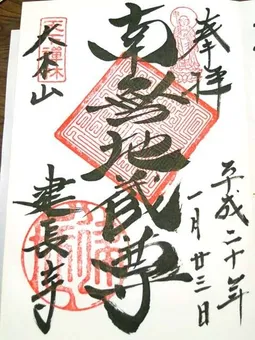 奉拝
平成二十年
一月廿三日
南無地蔵尊
天下禅林
大本山
建長寺